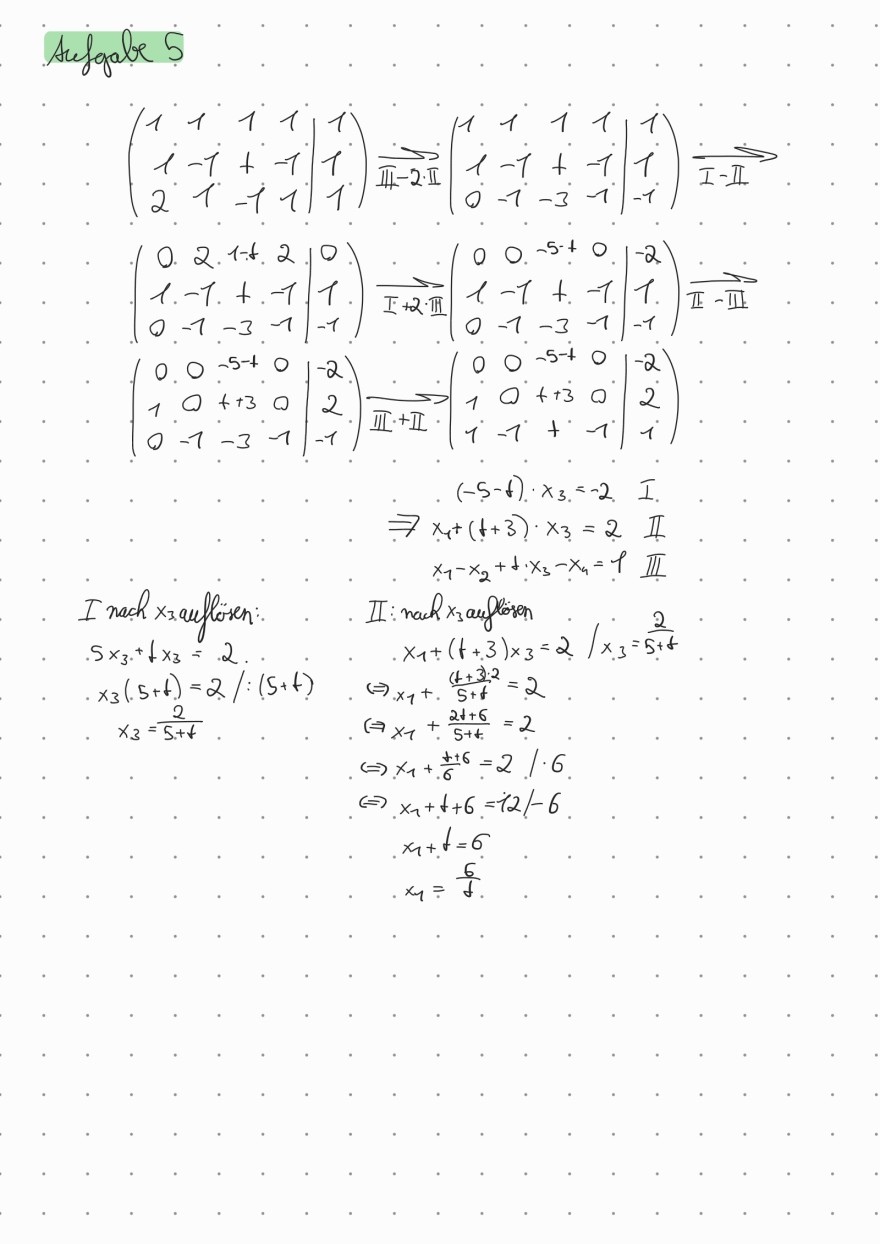 Aufgabe 5
1 1 1 1 | 1    1 1 1 1 | 1
1 -1 t -1 | 1  III-2·II  1 -1 t -1 | 1  I-II
2 1 -1 1 | 1    0 -1 -3 -1 | -1
0 2 1-t 2 | 0    0 0 -5-t 0 | -2
1 -1 t -1 | 1  I+2·III  1 -1 t -1 | 1  II-III
0 -1 -3 -1 | -1    0 -1 -3 -1 | -1
0 0 -5-t 0 | -2    0 0 -5-t 0 | -2
1 0 t+3 0 | 2  III+II  1 0 t+3 0 | 2
0 -1 -3 -1 | -1    1 -1 t -1 | 1
(-5-t)·x₃=-2 I
⇒ x₁+(t+3)·x₃=2 II
x₁-x₂+t·x₃-x₄=1 III
I nach x₃ auflösen:
5x₃+tx₃=2
x₃(5+t)=2 /:(5+t)
x₃=2/(5+t)
II: nach x₃ auflösen
x₁+(t+3)x₃=2 / x₃=2/(5+t)
⇔ x₁+((t+3)·2)/(5+t)=2
⇔ x₁+(2t+6)/(5+t)=2
⇔ x₁+(t+6)/6=2 /·6
⇔ x₁+t+6=12/-6
x₁+t=6
x₁=6/t